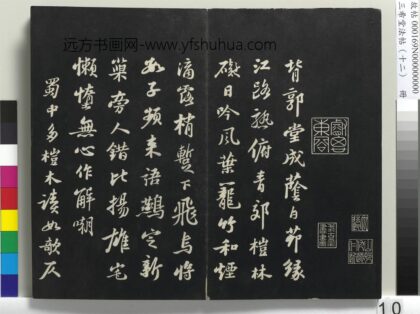 远方书画网-www.yfshuhua.com
三希堂法帖（十二） 册
背郭堂成蔭白茅緣
江路熟俯青郊榿林
礙日吟風葉籠竹和煙
滴露梢暫下飛烏將
數子頻來語鷰定新
巢旁人錯比揚雄宅
懶惰無心作解嘲
蜀中多榿木讀如欹仄
10